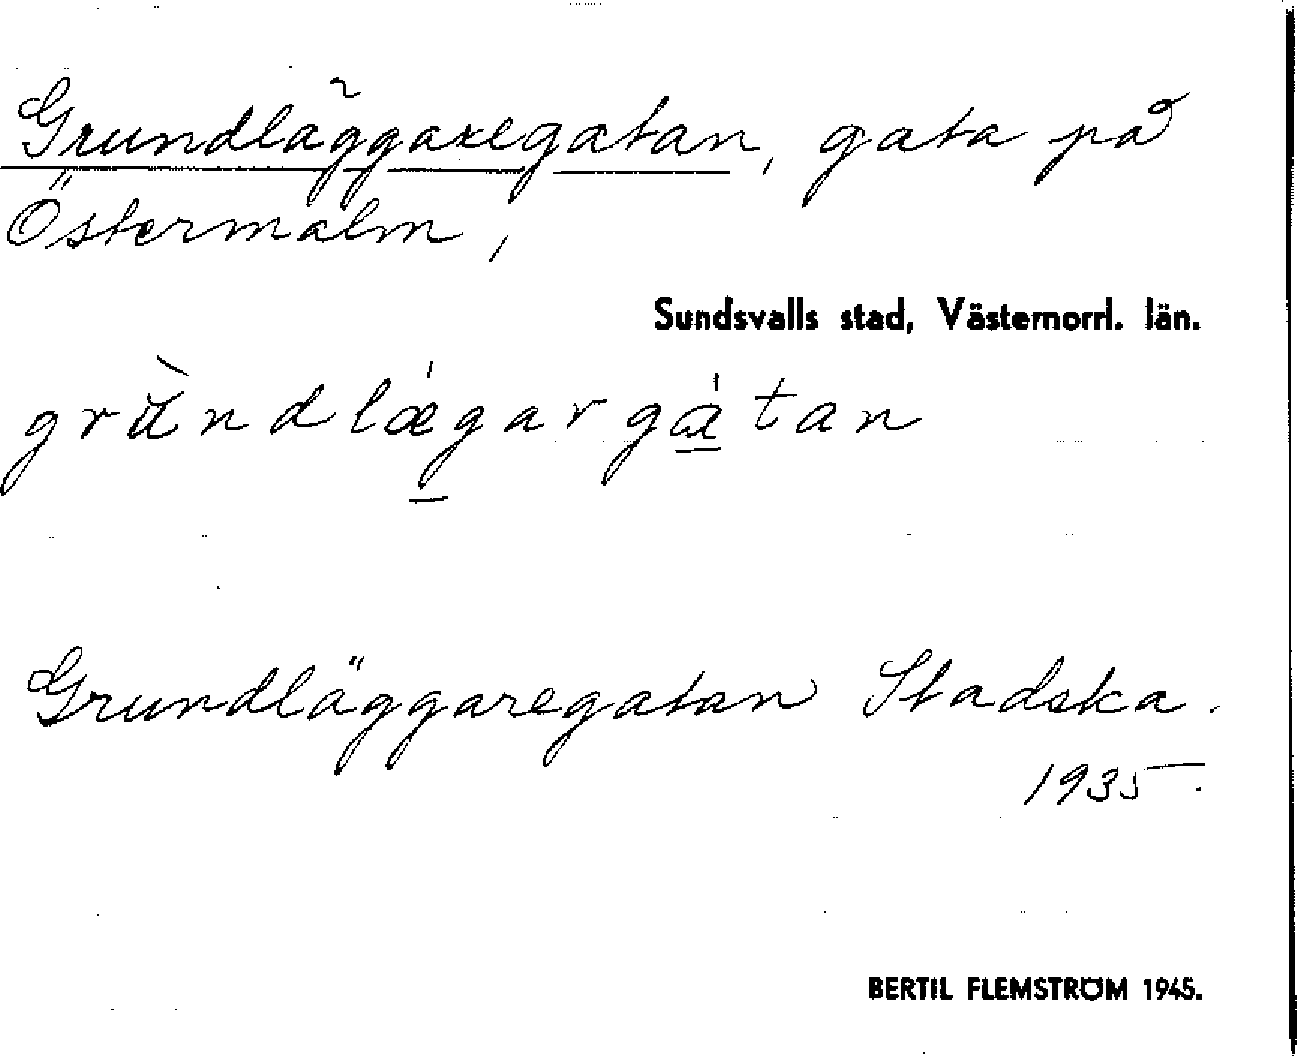 Grundläggaregatan, gata på
Östermalm,
Sundsvalls stad, Västernorrl. län.
grùndlǽgargátan
Grundläggaregatan Stadska.
1935.
BERTIL FLEMSTRÖM 1945.